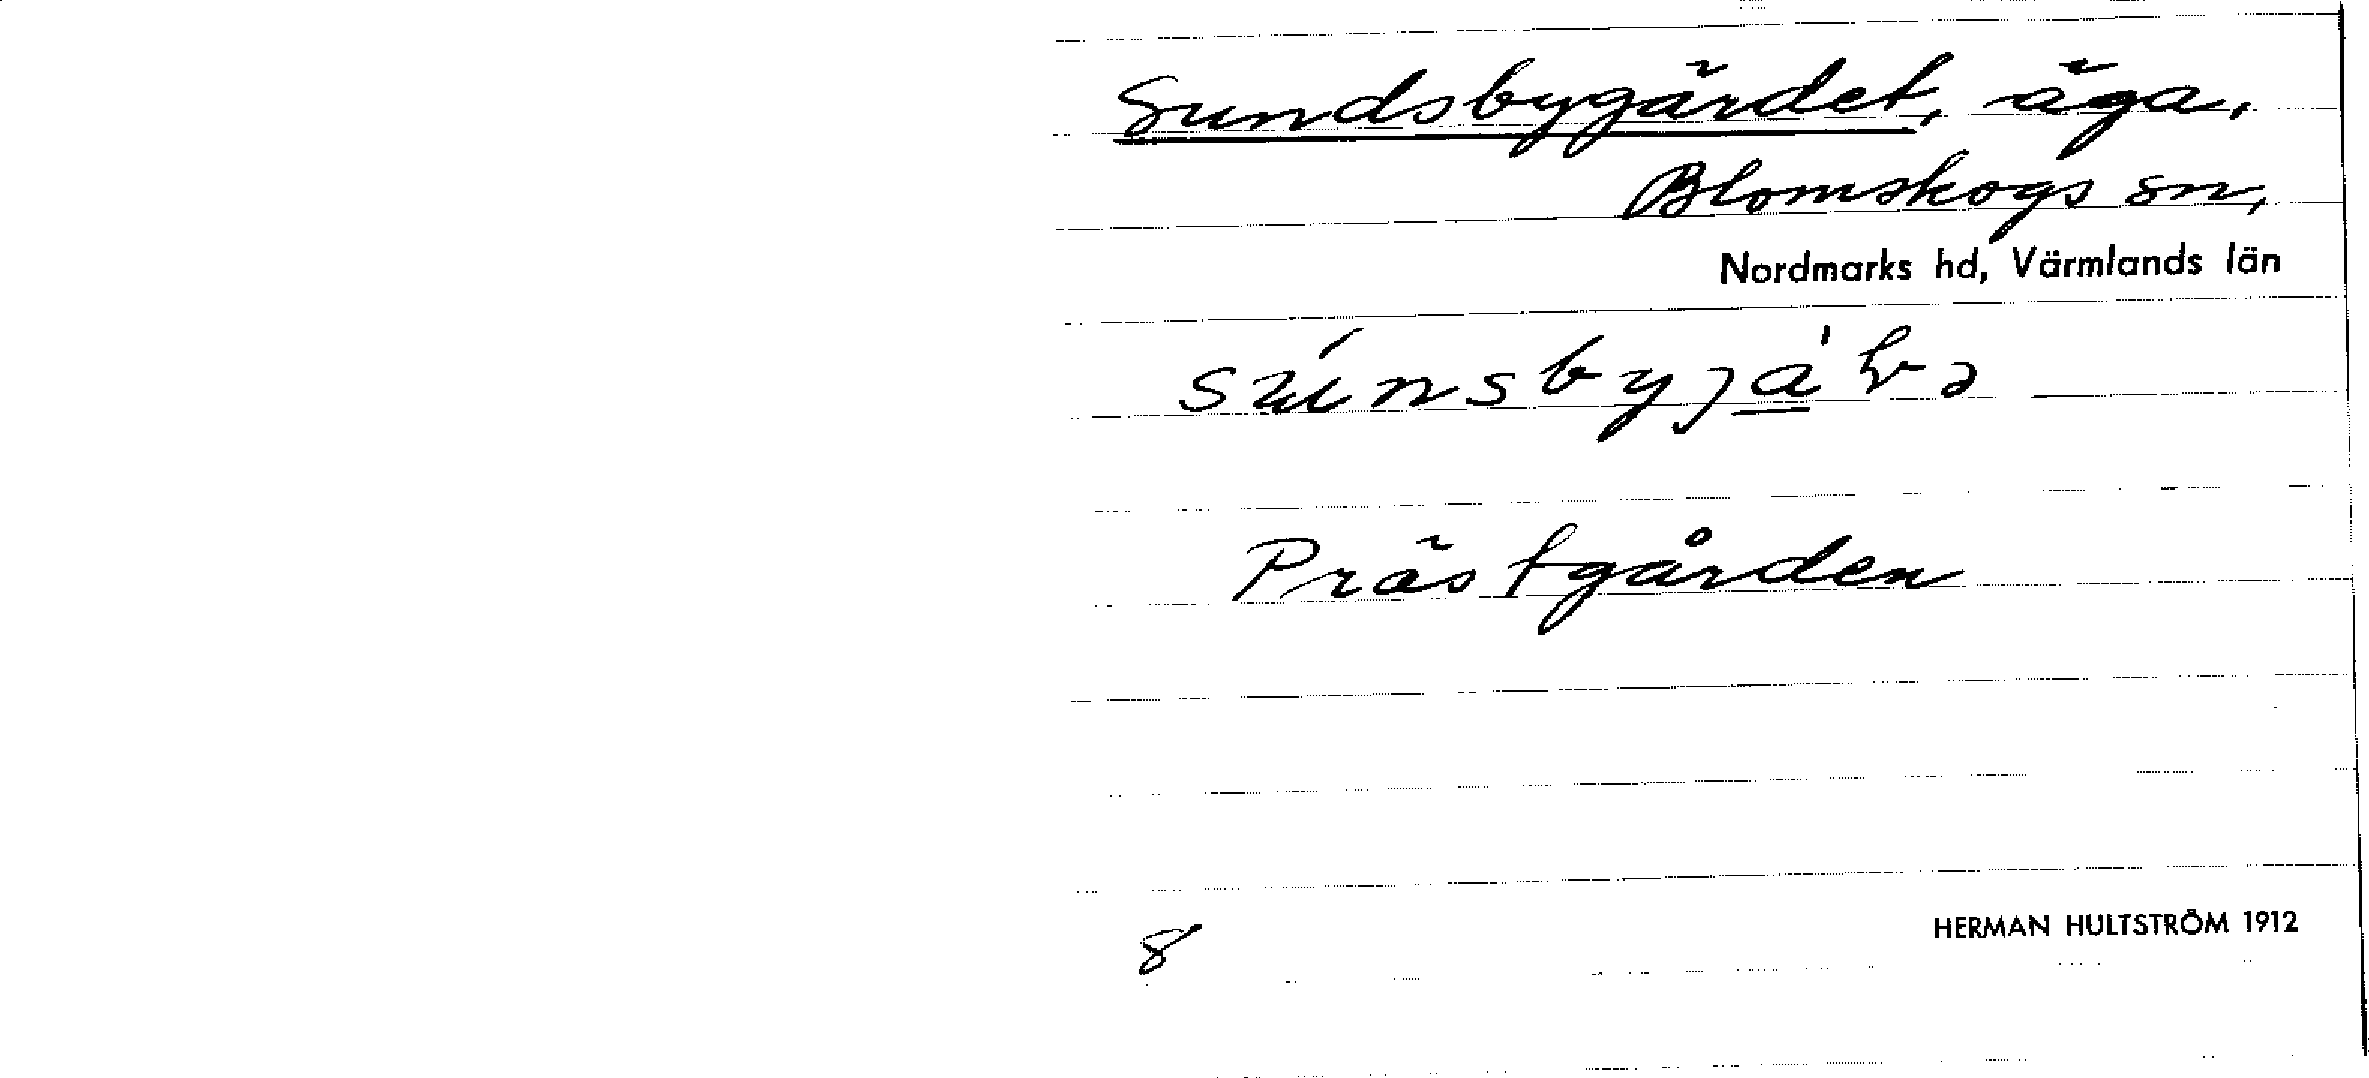 Sundsbygärdet, äga,
Blomskogs sn,
Nordmarks hd, Värmlands län
Prästgården
8
HERMAN HULTSTRÖM 1912